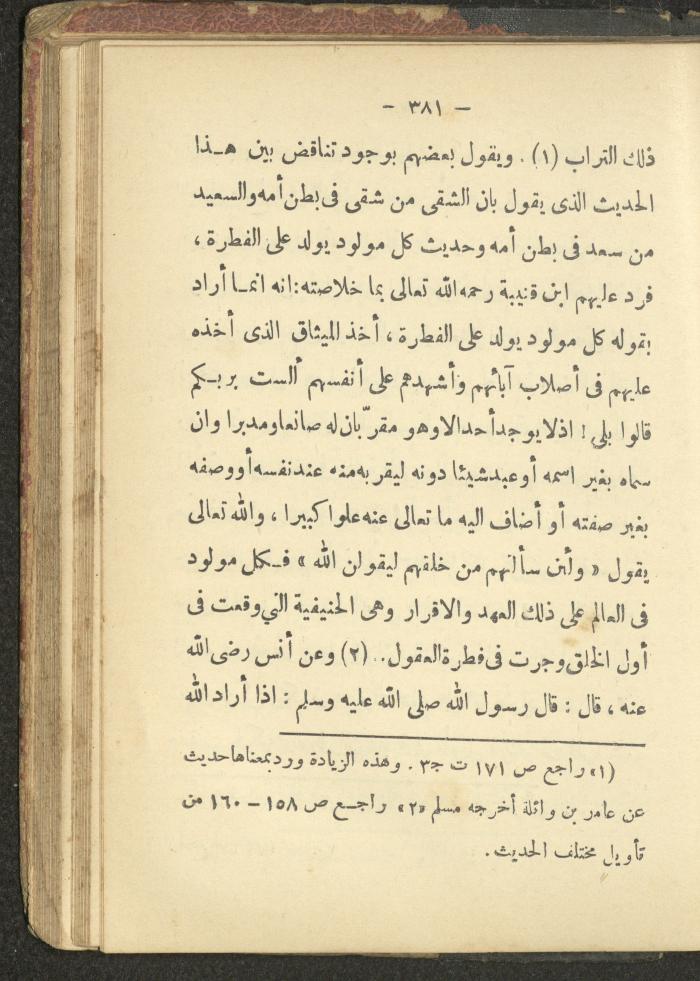 — ٣٨١ —
ذلك التراب (١) . ويقول بعضهم بوجود تناقض بين هـذا
الحديث الذى يقول بان الشقى من شقى فى بطن أمه والسعيد
من سعد فى بطن أمه وحديث كل مولود يولد على الفطرة ،
فرد عليهم ابن قتيبة رحمه الله تعالى بما خلاصته : انه انمـا أراد
بقوله كل مولود يولد على الفطرة ، أخذ الميثاق الذى أخذه
عليهم فى أصلاب آبائهم وأشهدهم على أنفسهم ألست بربـكم
قالوا بلى ! اذ لا يوجد أحد الا وهو مقرّ بان له صانعا ومدبرا وان
سماه بغير اسمه أو عبد شيئا دونه ليقربه منه عند نفسه أو وصفه
بغير صفته أو أضاف اليه ما تعالى عنه علوا كبيرا ، والله تعالى
يقول « ولئن سألتهم من خلقهم ليقولن الله » فـكل مولود
فى العالم على ذلك العهد والاقرار وهى الحنيفية التي وقعت فى
أول الخلق وجرت فى فطرة العقول .. (٢) وعن أنس رضى الله
عنه ، قال : قال رسول الله صلى الله عليه وسلم : اذا أراد الله
(١» راجع ص ١٧١ ت جـ٣ . وهذه الزيادة ورد بمعناها حديث
عن عامر بن واثلة أخرجه مسلم «٢» راجـع ص ١٥٨ – ١٦٠ من
تأويل مختلف الحديث .